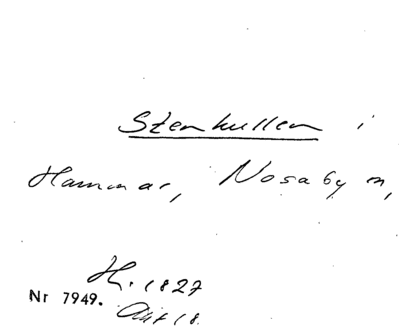 Stenkullen i
Hammar, Nosaby sn,
H. 1827
Nr 7949.
18.